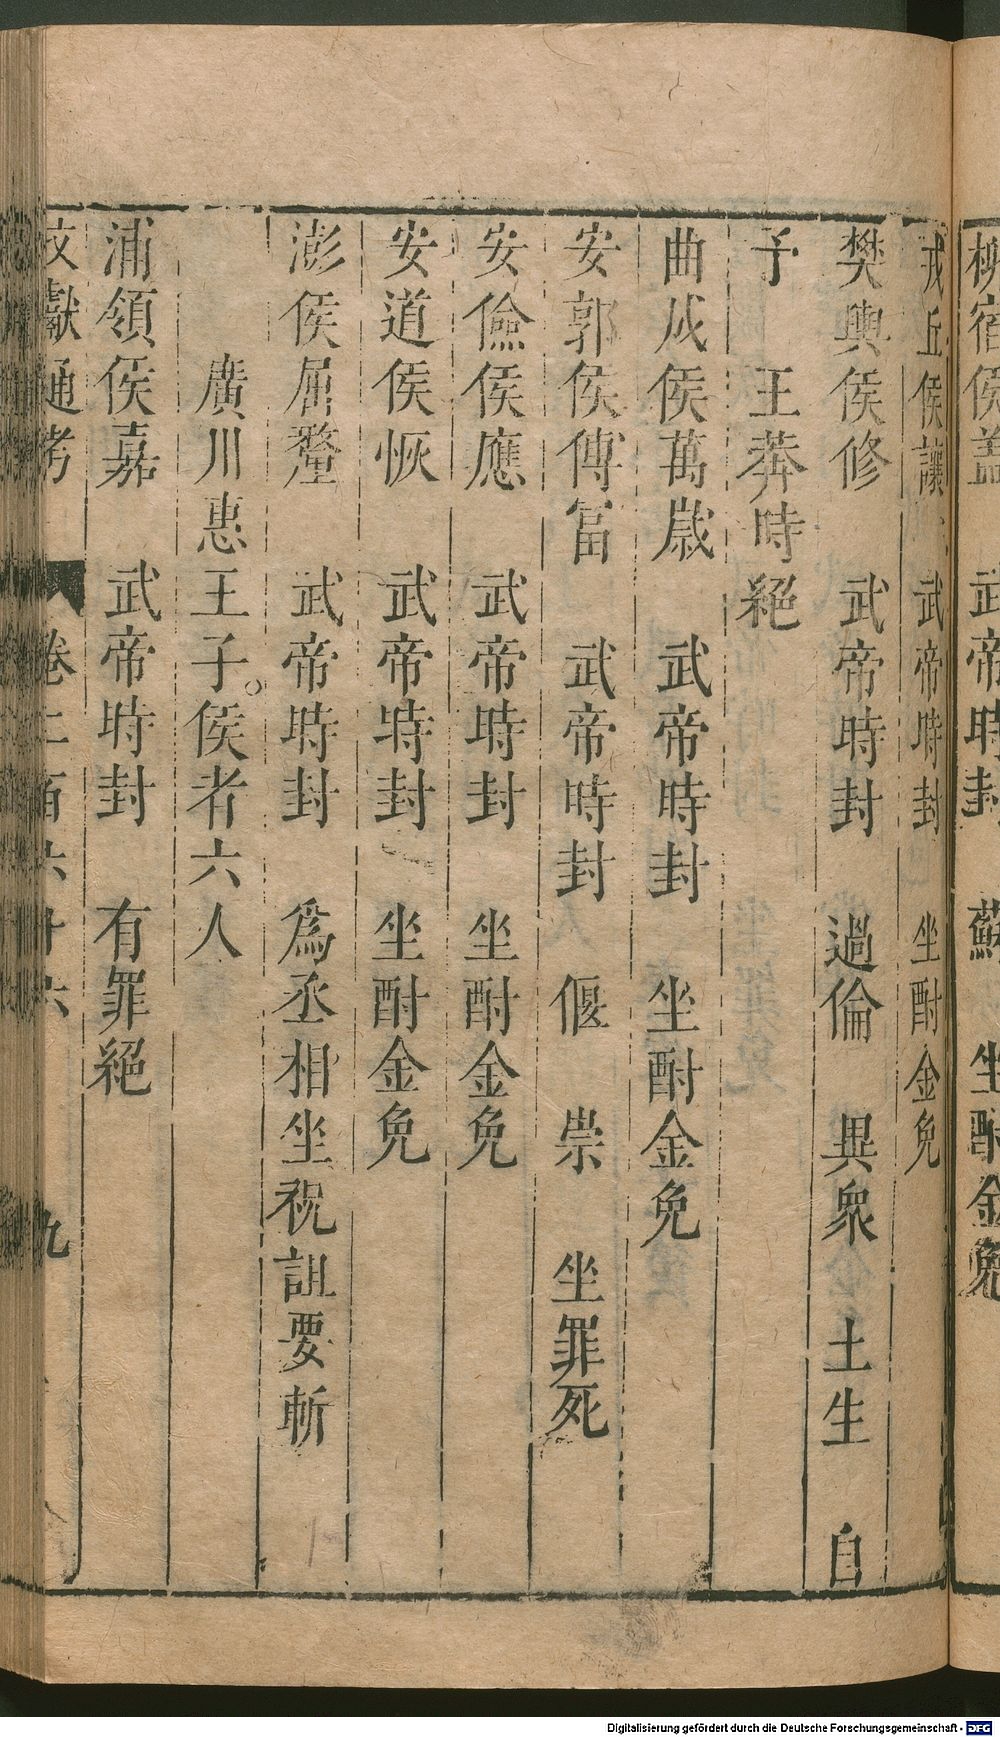 柳宿侯蓋　武帝時封　蘇　坐酎金免
戎丘侯讓　武帝時封　坐酎金免
樊輿侯修　武帝時封　過倫　異衆　土生　自
予　王莽時絕
曲成侯萬歲　武帝時封　坐酎金免
安郭侯傅富　武帝時封　偃　崇　坐罪死
安儉侯應　武帝時封　坐酎金免
安道侯恢　武帝時封　坐酎金免
澎侯屈釐　武帝時封　爲丞相坐祝詛要斬
廣川惠王子侯者六人
浦領侯嘉　武帝時封　有罪絕
文獻通考　卷二百六十六　九
Digitalisierung gefördert durch die Deutsche Forschungsgemeinschaft - DFG